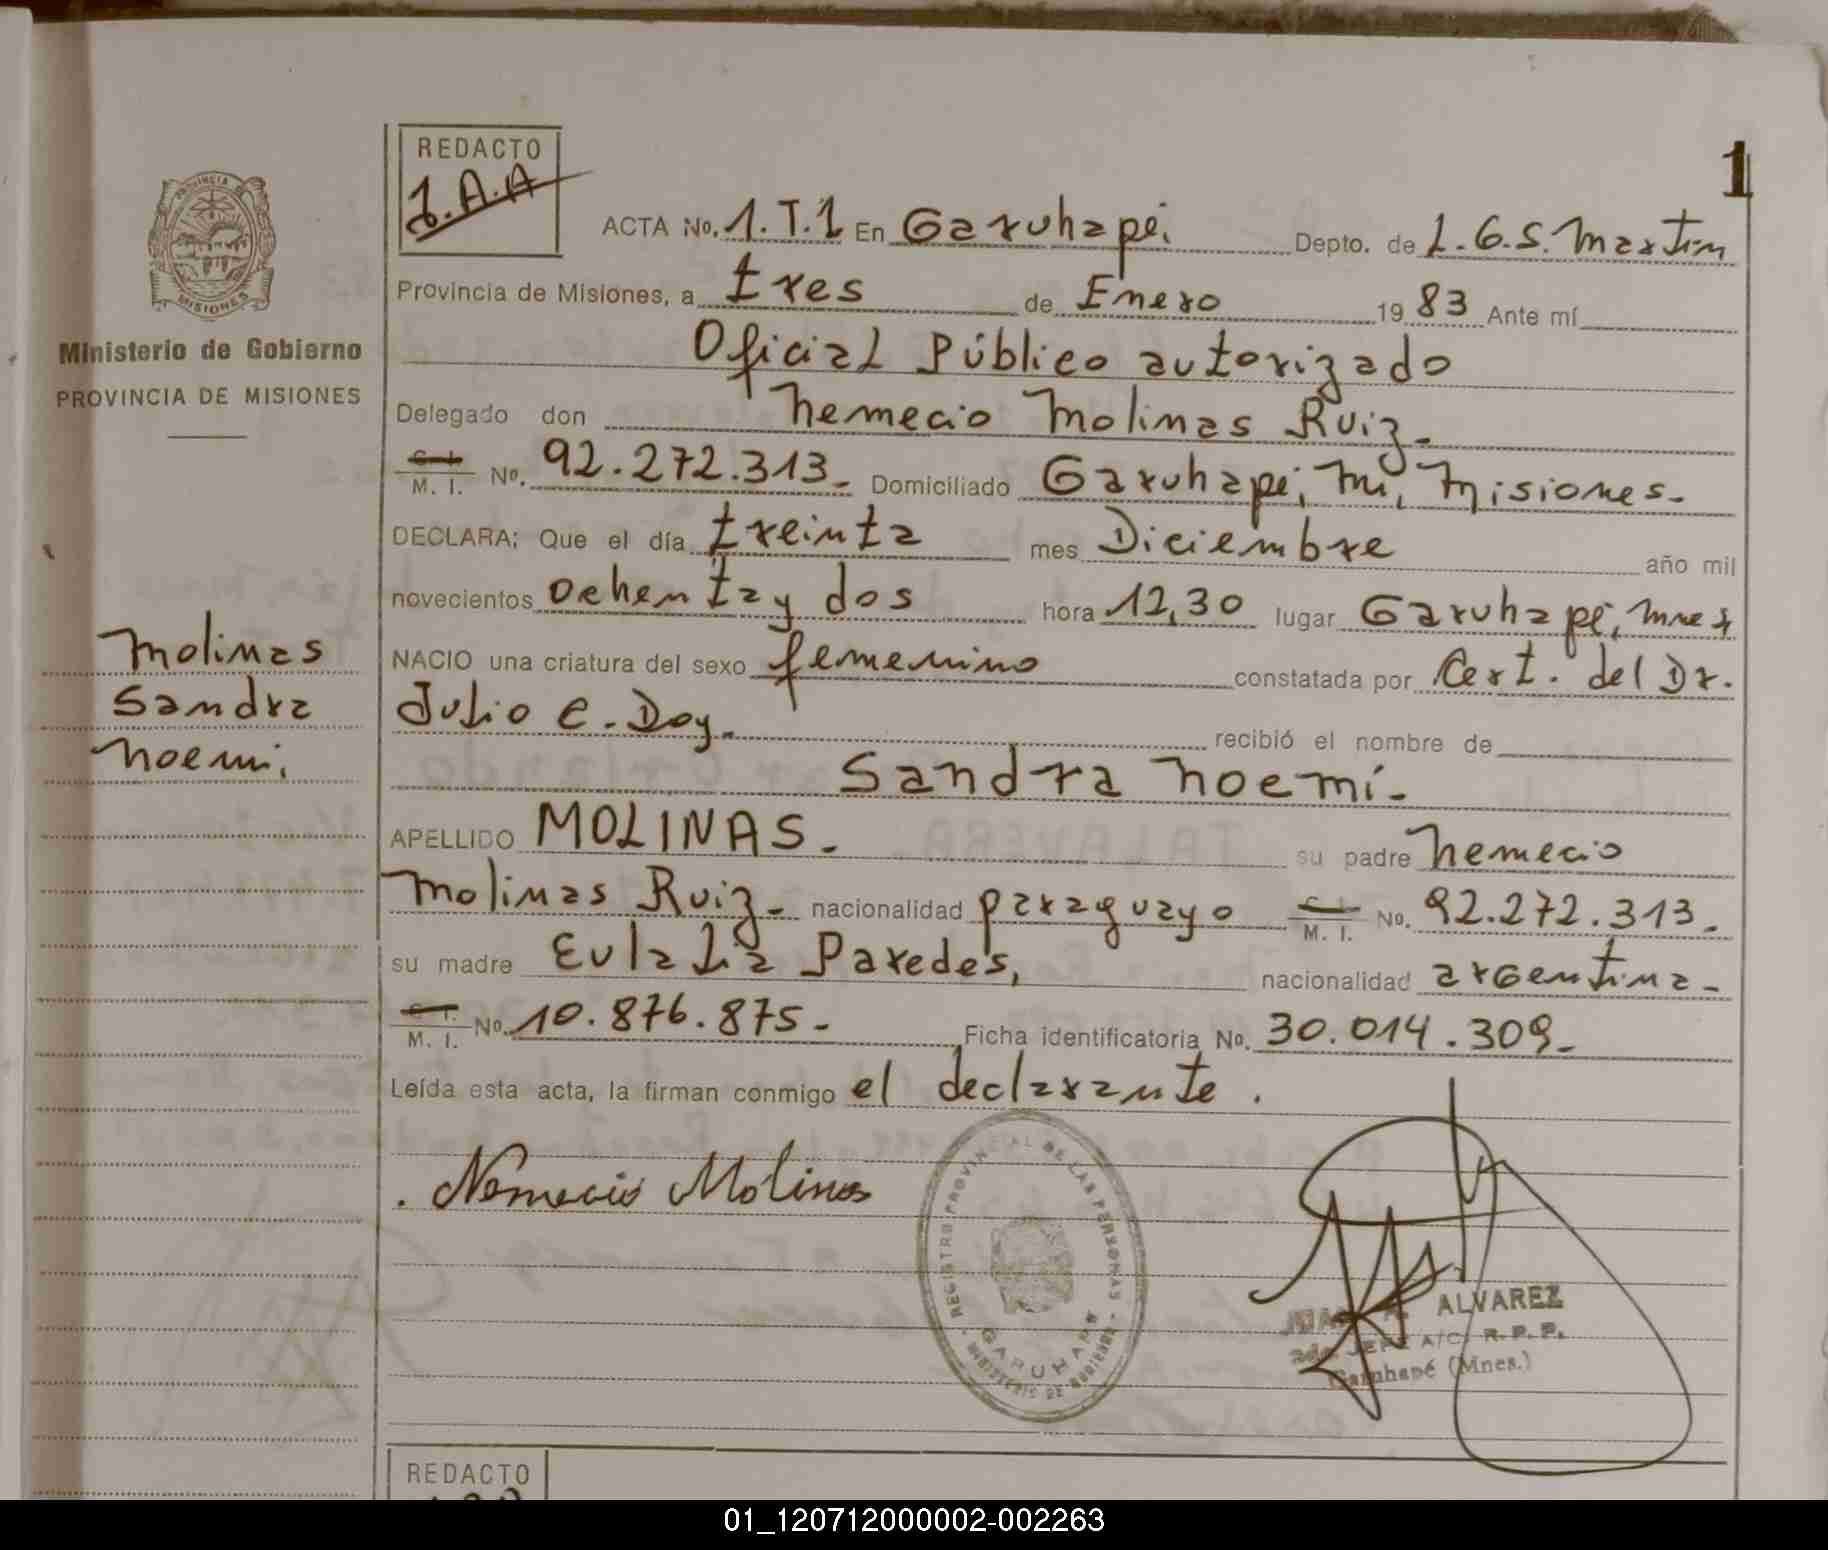 1
REDACTO
J.A.A
ACTA No. 1.T.1 En Garuhapé. Depto. de L.G.S. Martin
Provincia de Misiones, a tres de Enero 1983 Ante mí
Oficial Público autorizado
Delegado don Nemecio Molinas Ruiz.-
C. I. M. I. No. 92.272.313.- Domiciliado Garuhapé, Mi, Misiones.-
DECLARA: Que el día treinta mes Diciembre año mil
novecientos ochenta y dos hora 12,30 lugar Garuhapé, Mnes
NACIO una criatura del sexo femenino constatada por Cert. del Dr.
Julio C. Doy.- recibió el nombre de
Sandra Noemí.-
APELLIDO MOLINAS.- su padre Nemecio
Molinas Ruiz.- nacionalidad paraguayo C. I. M. I. No. 92.272.313.-
su madre Eulalia Paredes, nacionalidad argentina.-
C. I. M. I. No. 10.876.875.- Ficha identificatoria No. 30.014.309.-
Leída esta acta, la firman conmigo el declarante.
Nemecio Molinas
REGISTRO PROVINCIAL DE LAS PERSONAS
MINISTERIO DE GOBIERNO
GARUHAPE
JUAN A. ALVAREZ
2do. JEFE A/C. R. P. P.
Garuhapé (Mnes.)
PROVINCIA DE
MISIONES
Ministerio de Gobierno
PROVINCIA DE MISIONES
Molinas
Sandra
Noemi.
REDACTO
01_120712000002-002263